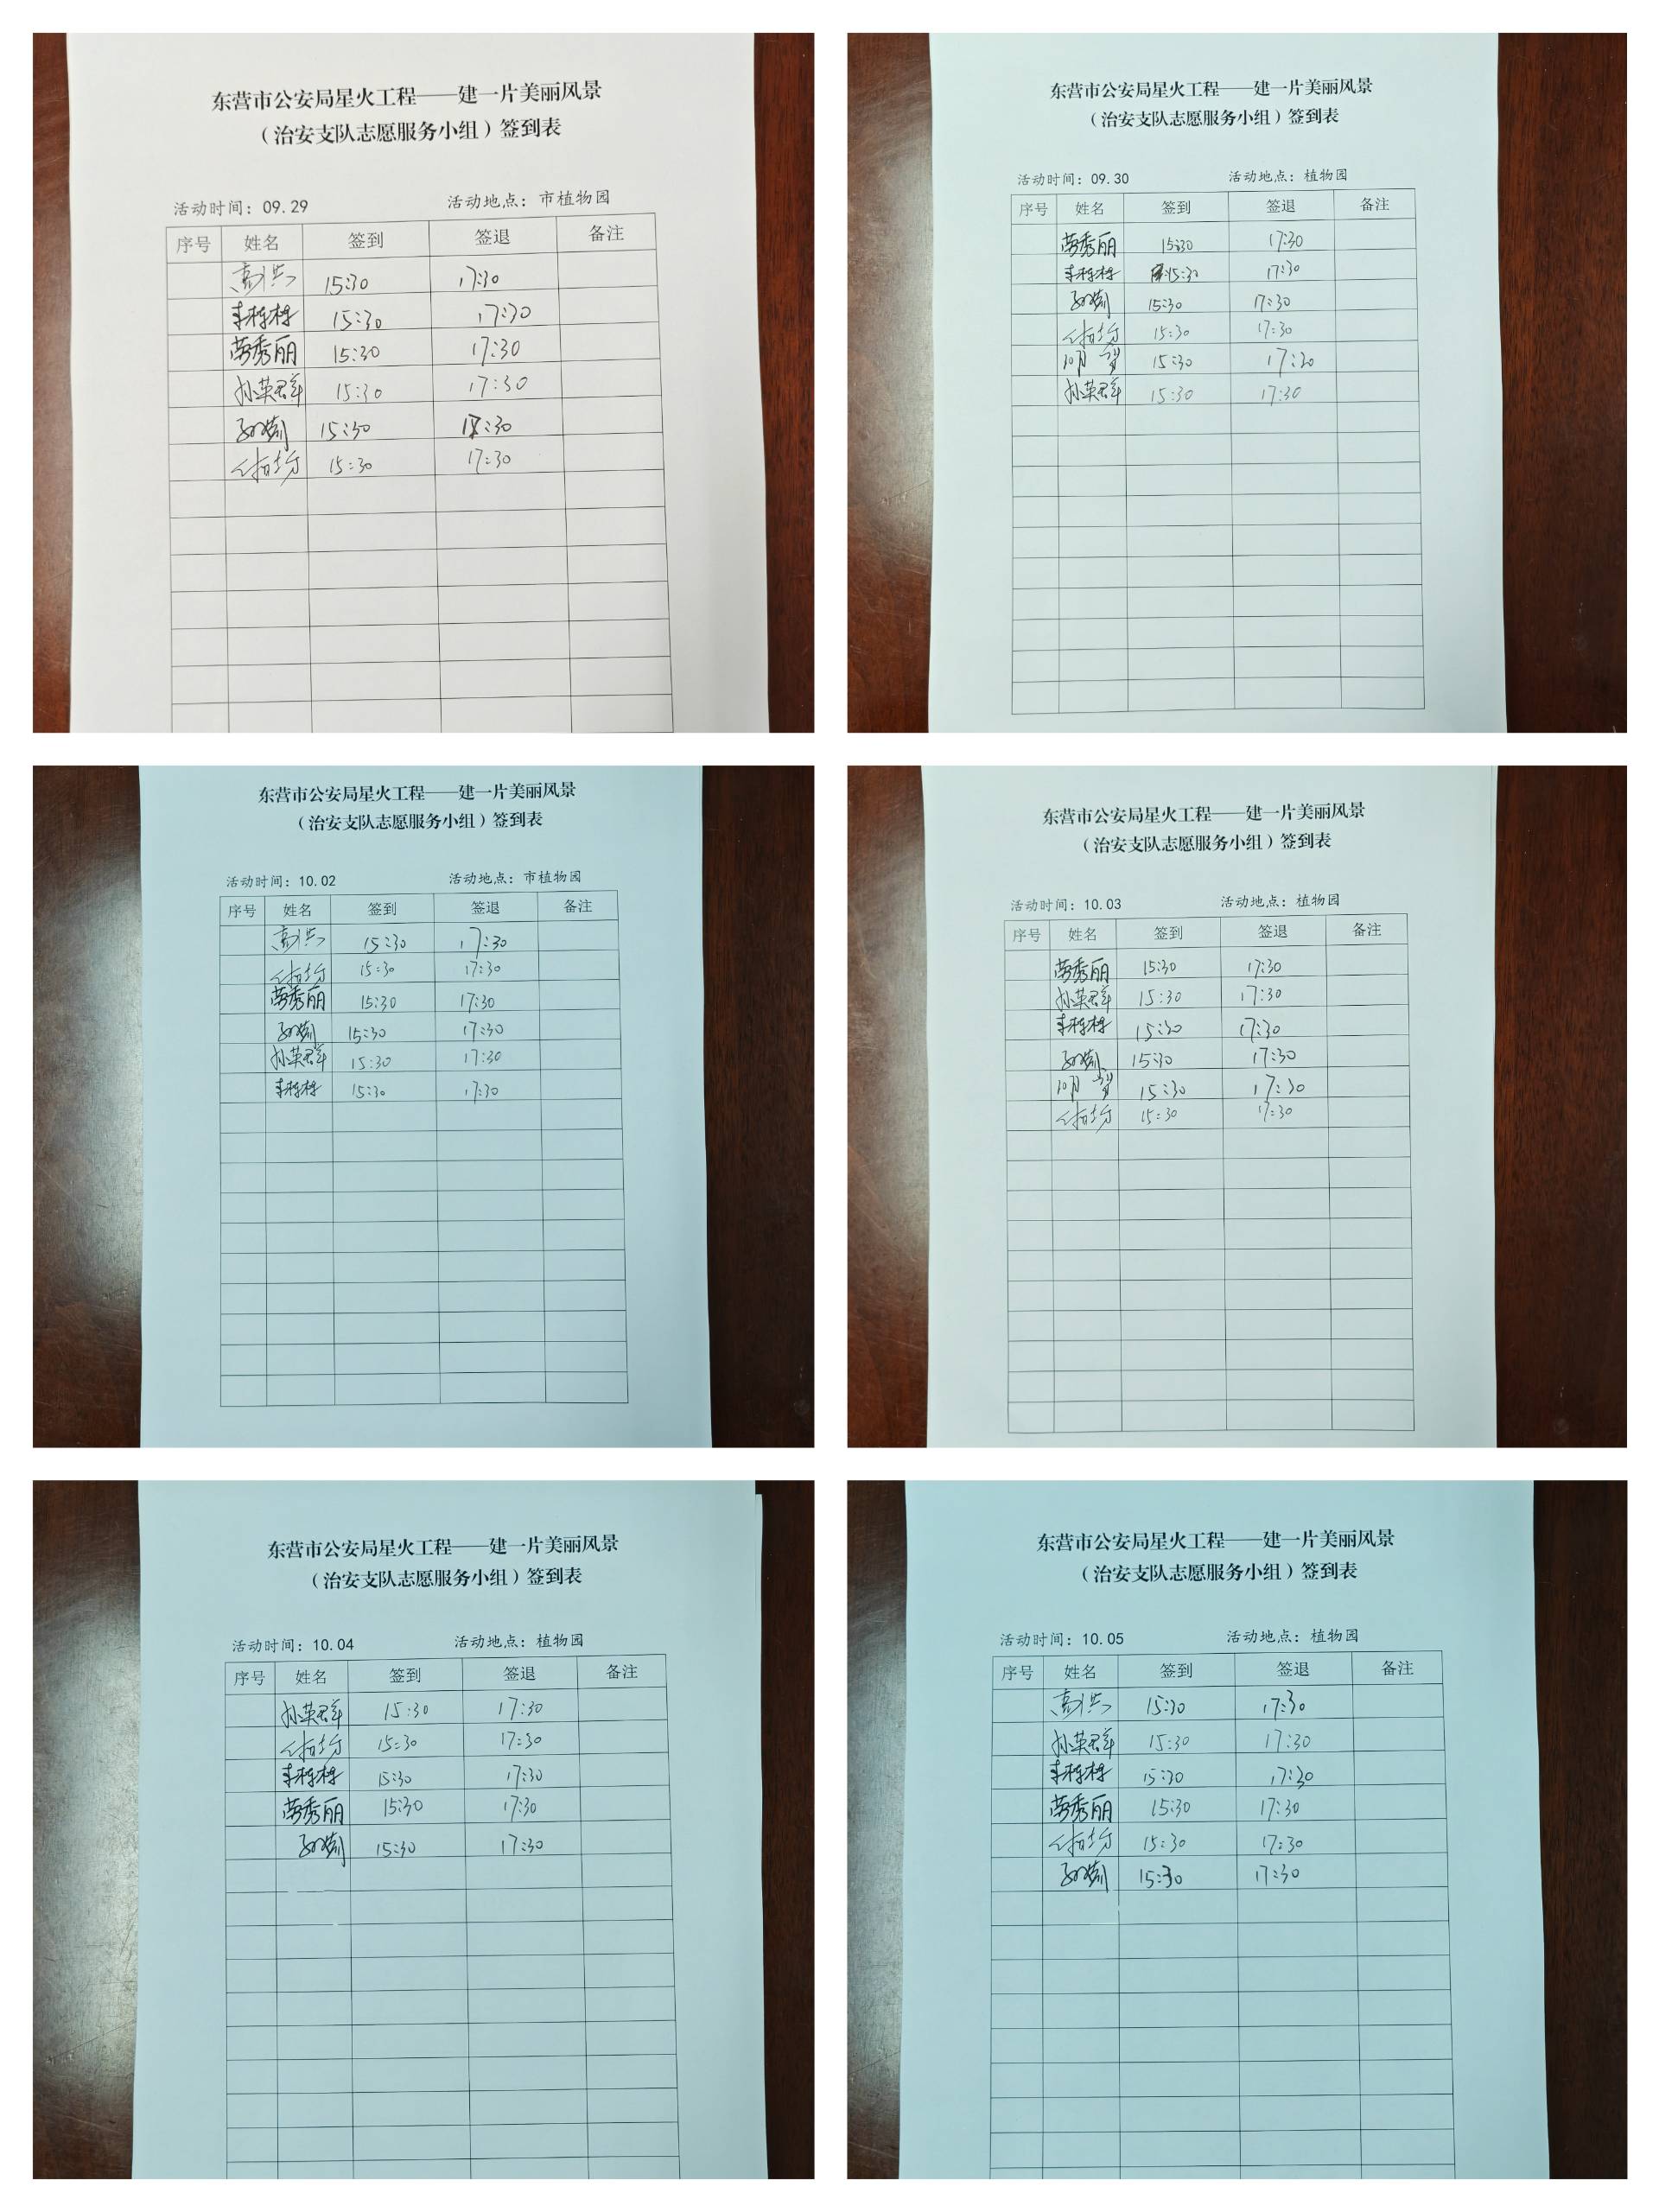 东营市公安局星火工程——建一片美丽风景
（治安支队志愿服务小组）签到表
活动时间：09.29 活动地点：市植物园
序号 姓名 签到 签退 备注
高洪 15:30 17:30
李栋栋 15:30 17:30
劳秀丽 15:30 17:30
孙英群 15:30 17:30
15:30 17:30
15:30 17:30
东营市公安局星火工程——建一片美丽风景
（治安支队志愿服务小组）签到表
活动时间：09.30 活动地点：植物园
序号 姓名 签到 签退 备注
劳秀丽 15:30 17:30
李栋栋 15:30 17:30
15:30 17:30
15:30 17:30
15:30 17:30
孙英群 15:30 17:30
东营市公安局星火工程——建一片美丽风景
（治安支队志愿服务小组）签到表
活动时间：10.02 活动地点：市植物园
序号 姓名 签到 签退 备注
高洪 15:30 17:30
15:30 17:30
劳秀丽 15:30 17:30
15:30 17:30
孙英群 15:30 17:30
李栋栋 15:30 17:30
东营市公安局星火工程——建一片美丽风景
（治安支队志愿服务小组）签到表
活动时间：10.03 活动地点：植物园
序号 姓名 签到 签退 备注
劳秀丽 15:30 17:30
孙英群 15:30 17:30
李栋栋 15:30 17:30
15:30 17:30
15:30 17:30
15:30 17:30
东营市公安局星火工程——建一片美丽风景
（治安支队志愿服务小组）签到表
活动时间：10.04 活动地点：植物园
序号 姓名 签到 签退 备注
孙英群 15:30 17:30
15:30 17:30
李栋栋 15:30 17:30
劳秀丽 15:30 17:30
15:30 17:30
东营市公安局星火工程——建一片美丽风景
（治安支队志愿服务小组）签到表
活动时间：10.05 活动地点：植物园
序号 姓名 签到 签退 备注
高洪 15:30 17:30
孙英群 15:30 17:30
李栋栋 15:30 17:30
劳秀丽 15:30 17:30
15:30 17:30
15:30 17:30